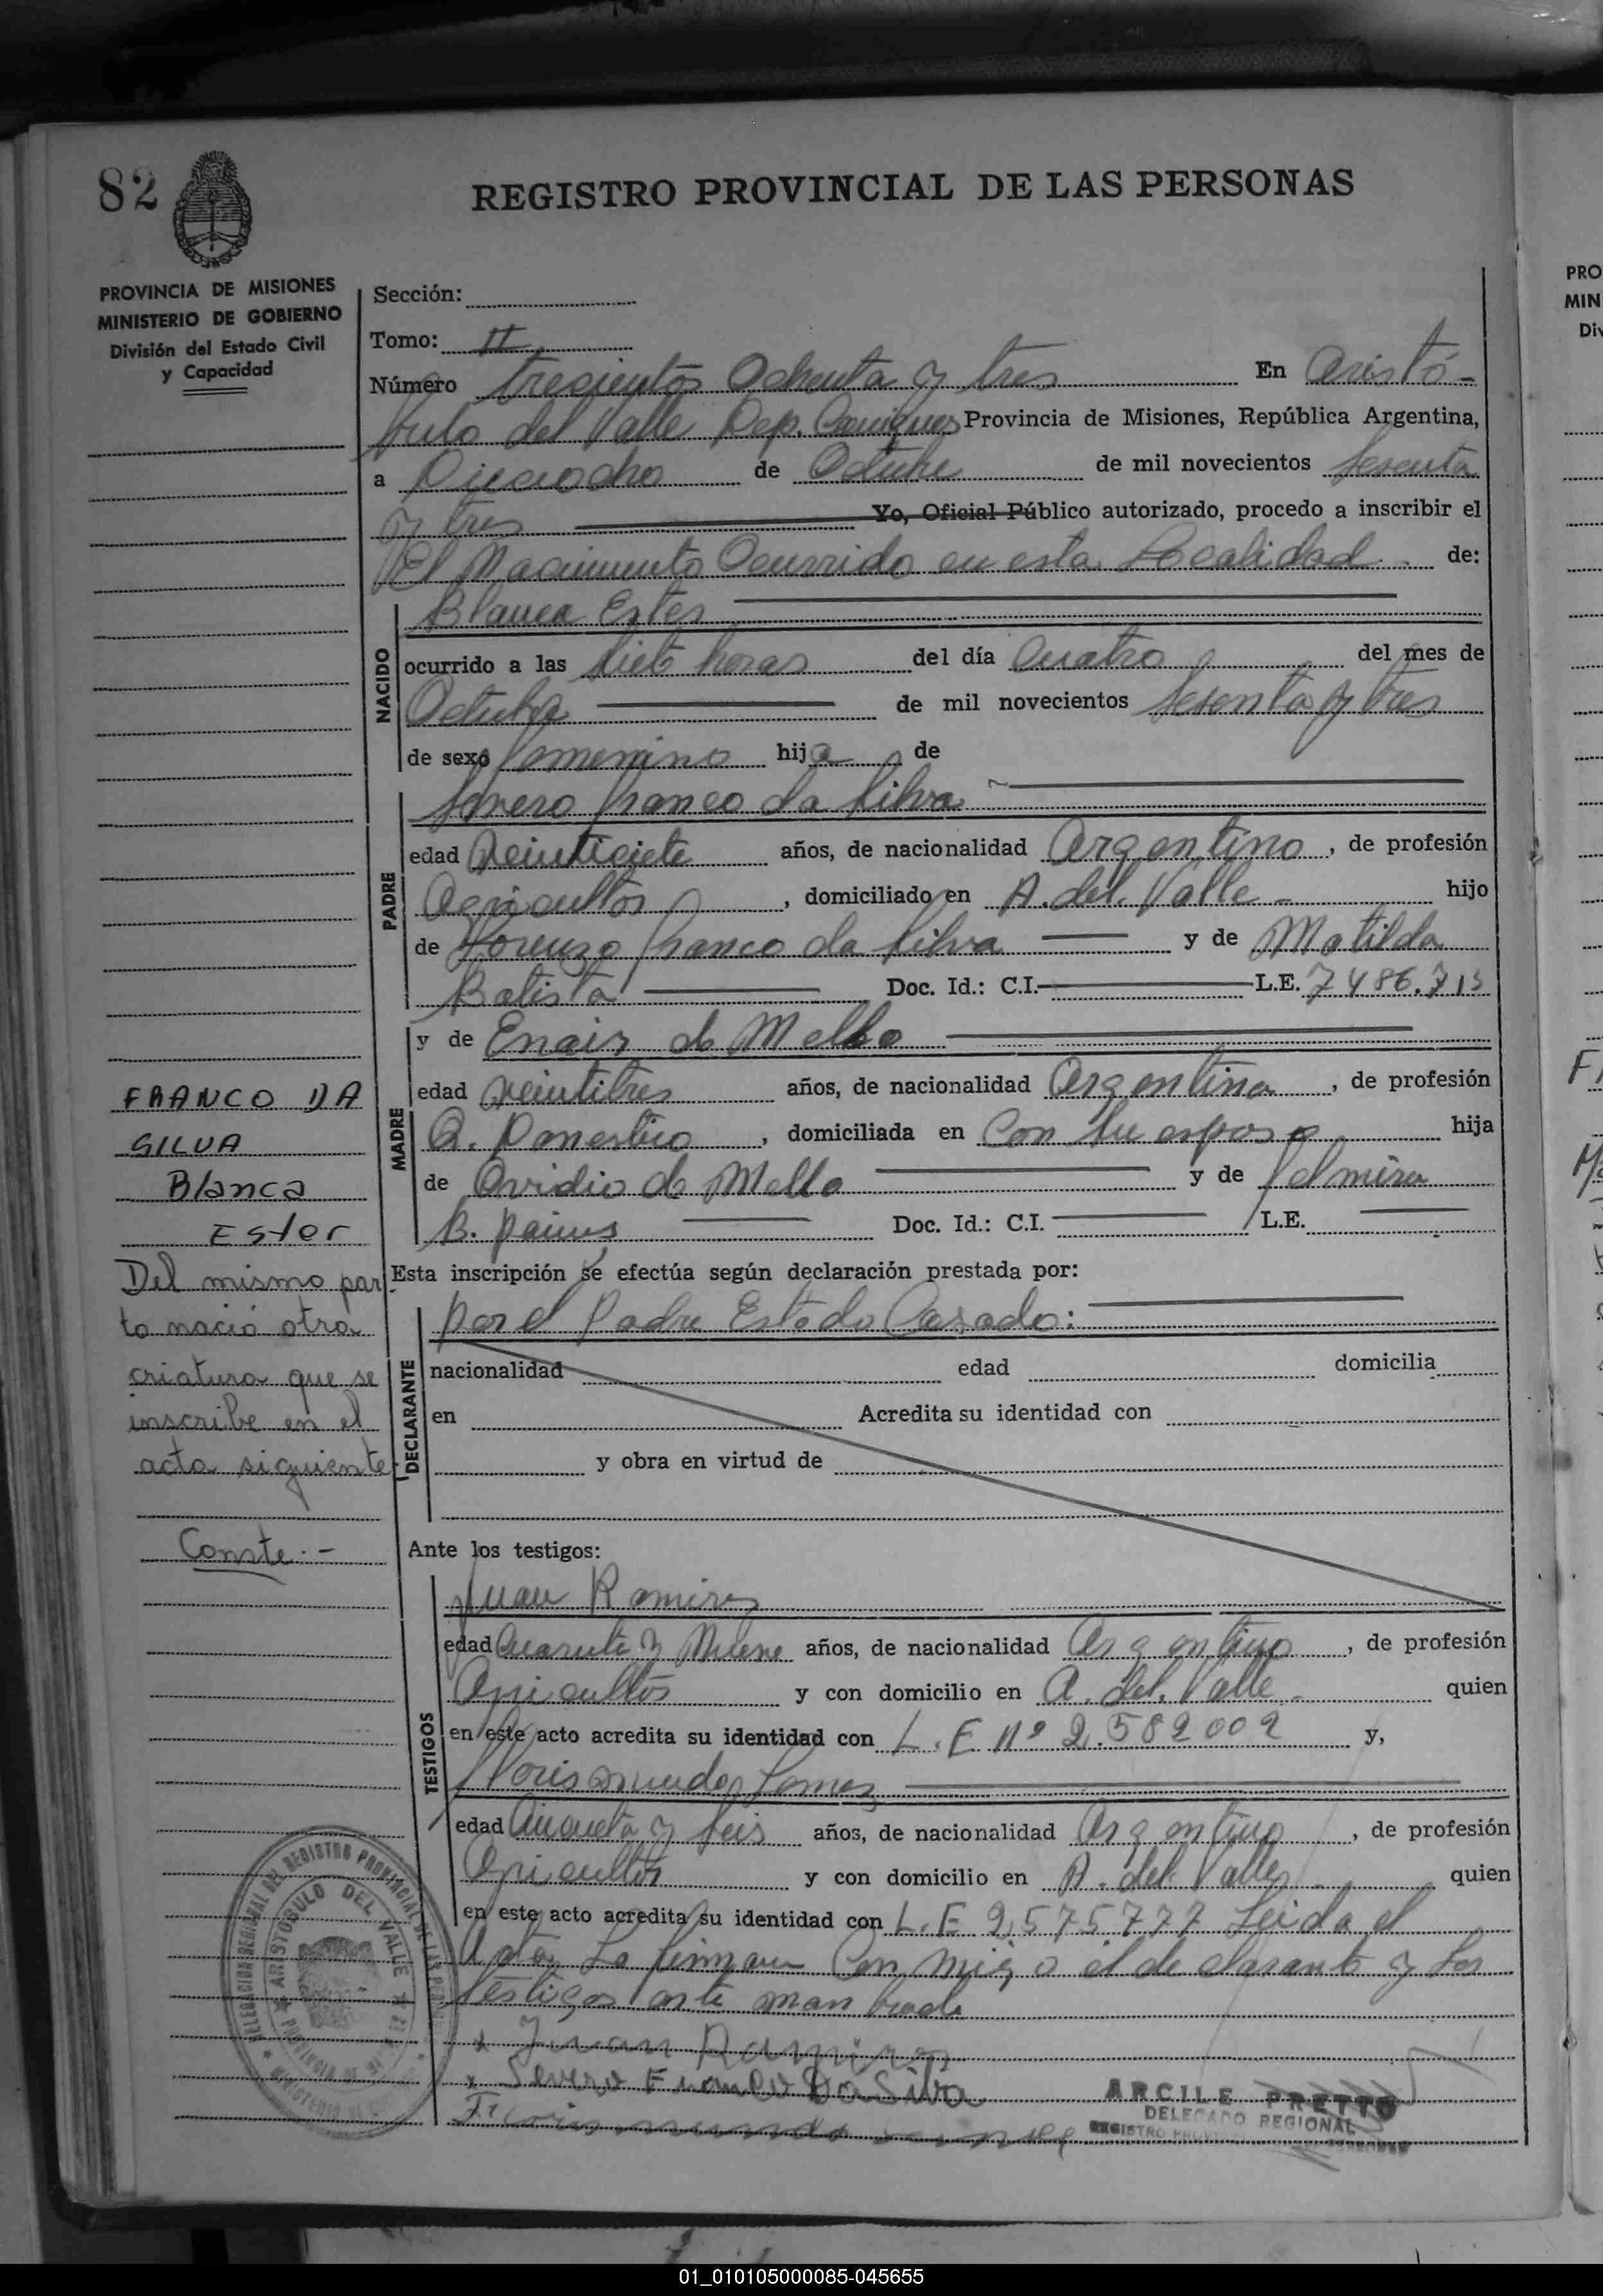 82
REGISTRO PROVINCIAL DE LAS PERSONAS
PROVINCIA DE MISIONES
MINISTERIO DE GOBIERNO
División del Estado Civil
y Capacidad
Sección:
Tomo: II
Número trecientos Ochenta y tres En Aristó-
bulo del Valle Dep. Provincia de Misiones, República Argentina,
a Dieciocho de Octubre de mil novecientos Sesenta
y tres Yo, Oficial Público autorizado, procedo a inscribir el
El Nacimiento Ocurrido en esta Localidad de:
NACIDO
Blanca Ester
ocurrido a las siete horas del día Cuatro del mes de
Octubre de mil novecientos Sesenta y tres
de sexo femenino hija de
PADRE
Severo franco da Silva
edad Veintisiete años, de nacionalidad Argentino, de profesión
Agricultor, domiciliado en A. del Valle - hijo
de Lorenzo franco da Silva y de Matilda
Batista Doc. Id.: C.I. L.E. 7486.713
MADRE
y de Enair de Mello
edad veintitres años, de nacionalidad Argentina, de profesión
Q. Domestico, domiciliada en Con su esposo hija
de Ovidio de Mello y de
B. Doc. Id.: C.I. L.E.
Esta inscripción se efectúa según declaración prestada por:
DECLARANTE
por el Padre Estado Casado:
nacionalidad edad domicilia
en Acredita su identidad con
y obra en virtud de
FRANCO DA
SILVA
Blanca
Ester
Del mismo par-
to nació otra
criatura que se
inscribe en el
acta siguiente.
Conste.-
Ante los testigos:
TESTIGOS
Juan Ramires
edad Cuarenta y Nueve años, de nacionalidad Argentino, de profesión
Agricultor y con domicilio en A. del Valle - quien
en este acto acredita su identidad con L.E. Nº 2.582002 y,
edad y seis años, de nacionalidad Argentino, de profesión
Agricultor y con domicilio en A. del Valle quien
en este acto acredita su identidad con L.E 2,575777 Leida el
Acta, La firman Con migo el declarante y los
testigos
x Juan Ramires
x Severo Franco Da Silva
ARCILE PRETTO
DELEGADO REGIONAL
ARISTOBULO DEL VALLE
PRO
MIN
01_010105000085-045655